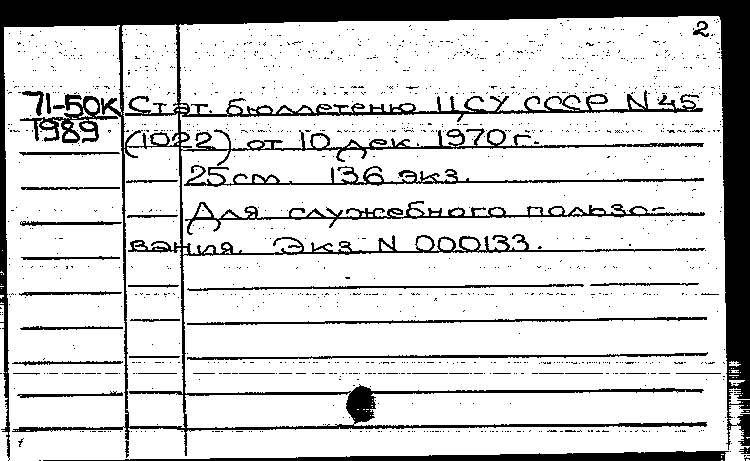 2
71-50К Стат. бюллетеню ЦСУ СССР N 45
1989 (1022) от 10 дек. 1970 г.
25 см. 136 экз.
Для служебного пользо-
вания. Экз. N 000133.